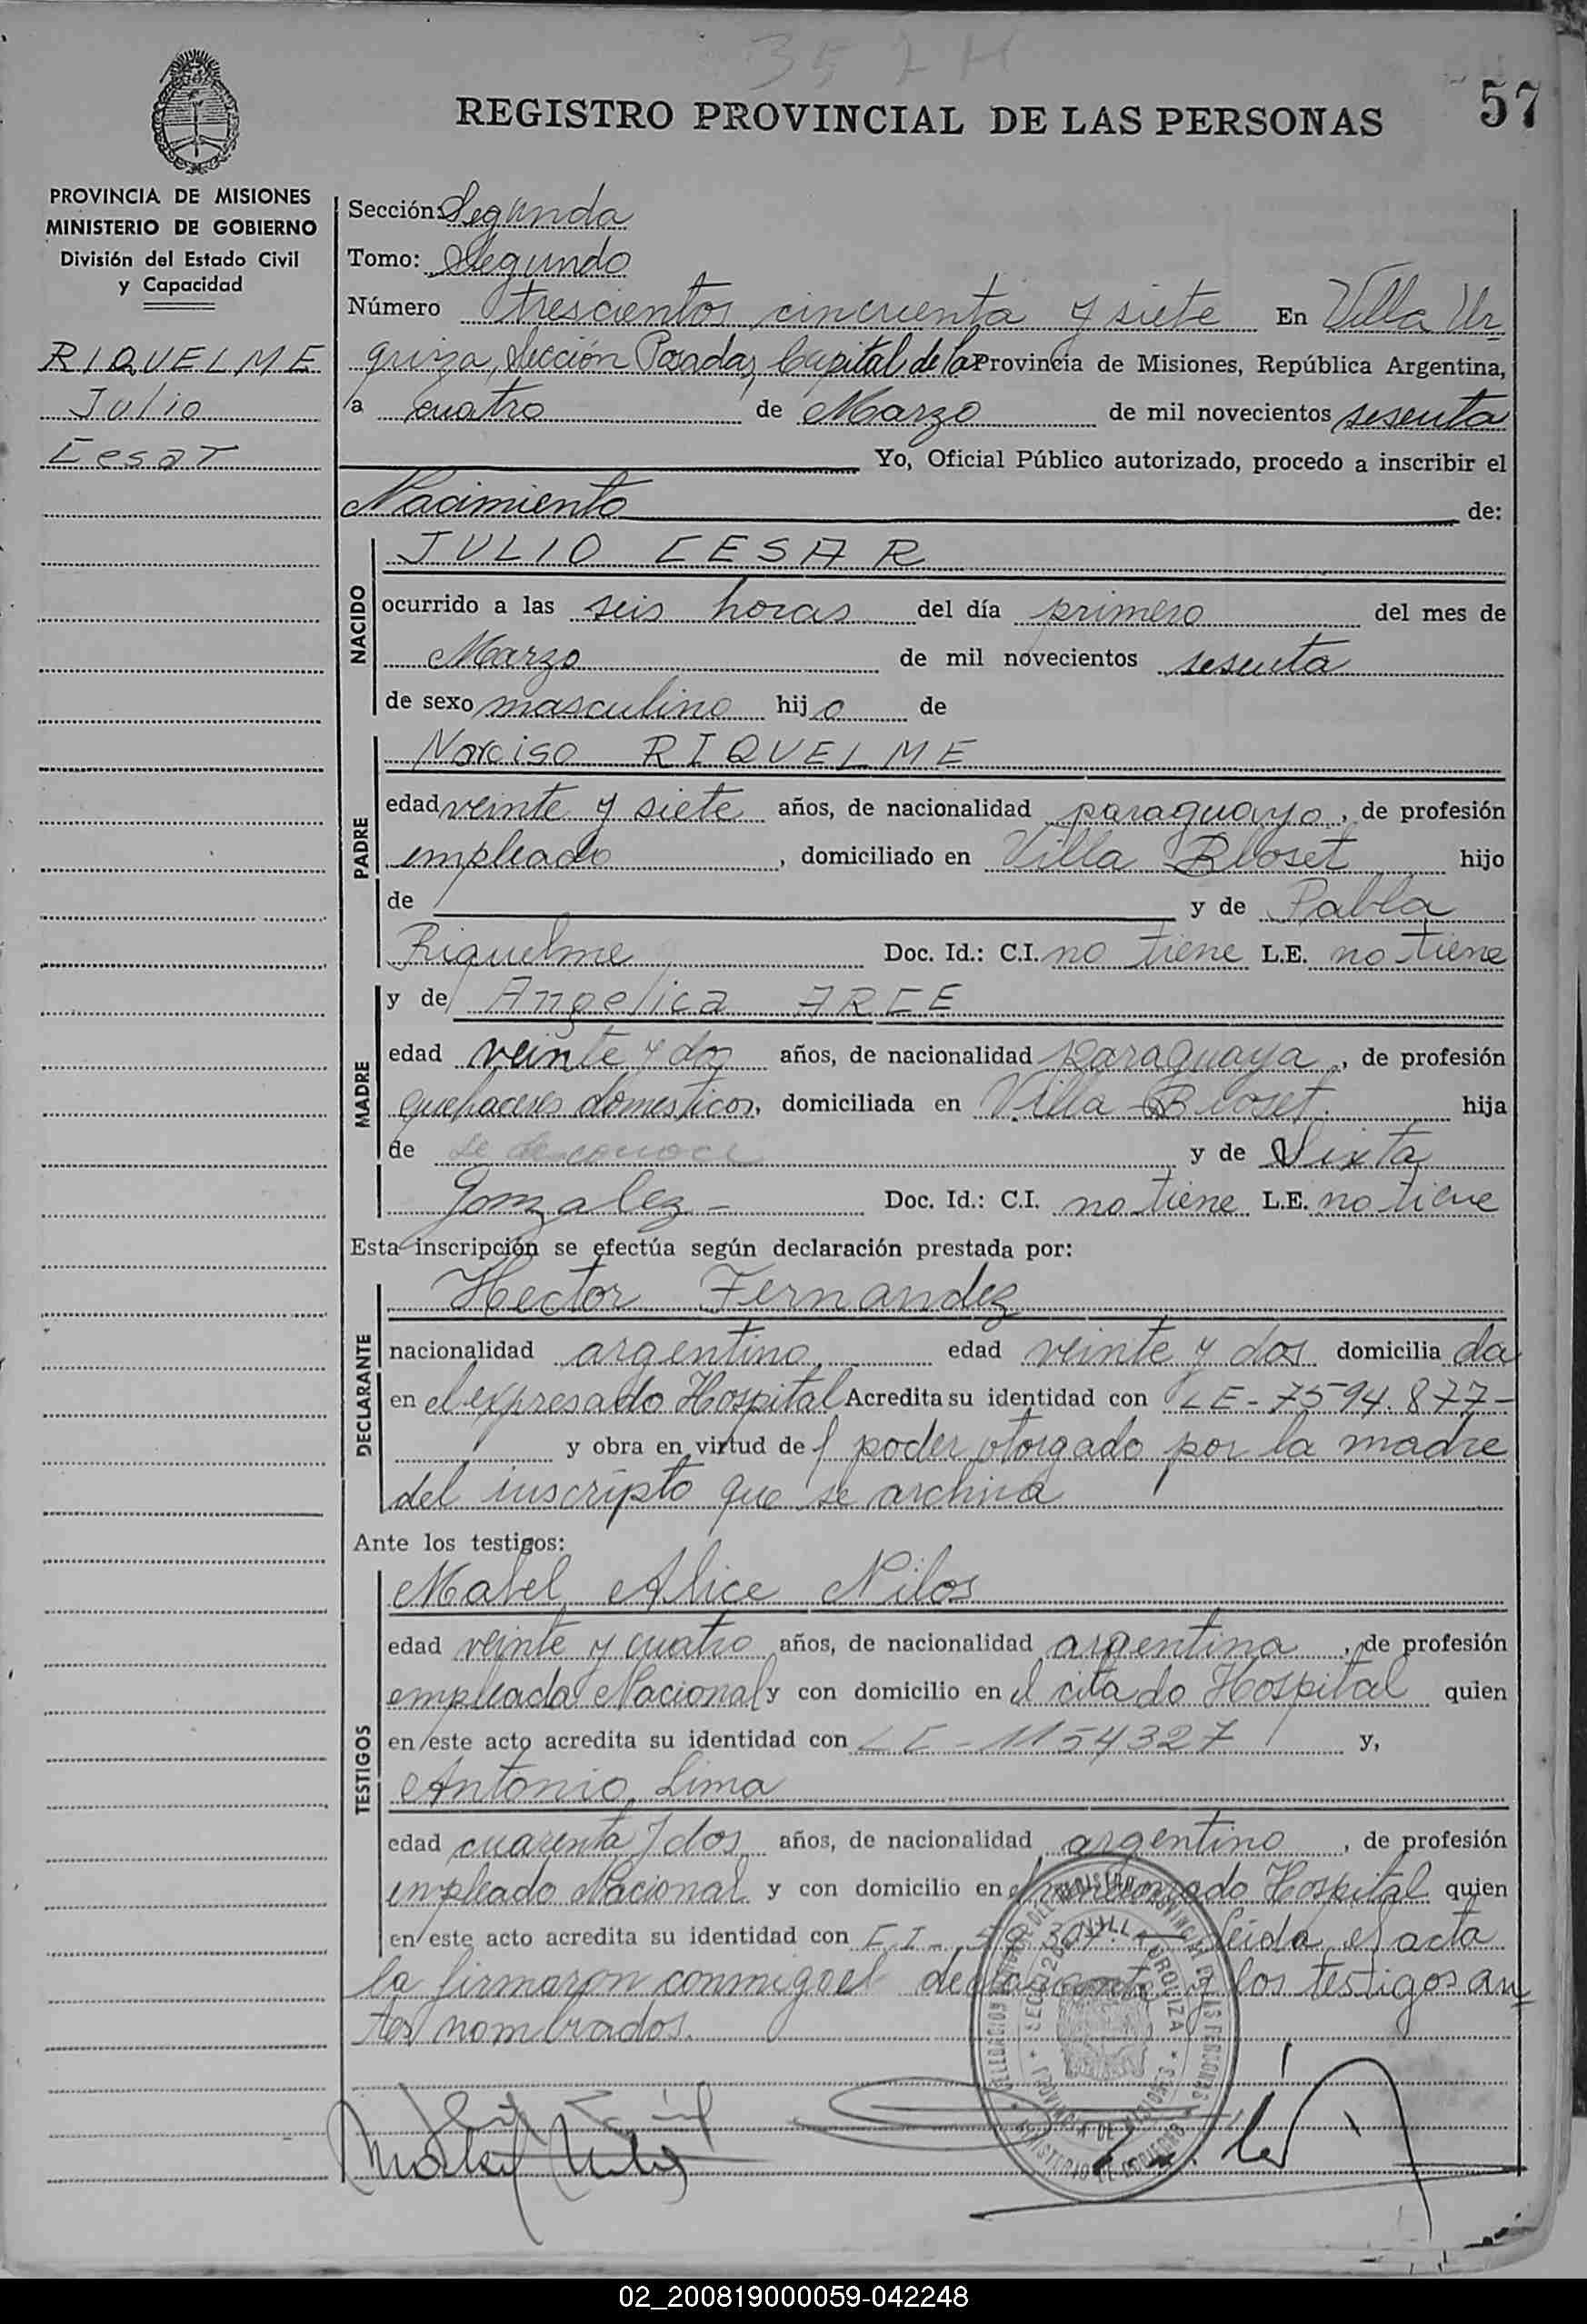 357 H
57
REGISTRO PROVINCIAL DE LAS PERSONAS
PROVINCIA DE MISIONES
MINISTERIO DE GOBIERNO
División del Estado Civil
y Capacidad
RIQUELME
Julio
Cesar
Sección: Segunda
Tomo: Segundo
Número trescientos cincuenta y siete En Villa Ur
quiza, Sección Posadas, Capital de la Provincia de Misiones, República Argentina,
a cuatro de Marzo de mil novecientos sesenta
Yo, Oficial Público autorizado, procedo a inscribir el
Nacimiento de:
NACIDO
JULIO CESAR
ocurrido a las seis horas del día primero del mes de
Marzo de mil novecientos sesenta
de sexo masculino hijo de
PADRE
Narciso RIQUELME
edad veinte y siete años, de nacionalidad paraguayo, de profesión
empleado, domiciliado en Villa Bloset hijo
de y de Pabla
Riquelme Doc. Id.: C.I. no tiene L.E. no tiene
MADRE
y de Angelica ARCE
edad veinte y dos años, de nacionalidad paraguaya, de profesión
quehaceres domesticos, domiciliada en Villa Bloset. hija
de se desconoce y de Sixta
Gonzalez - Doc. Id.: C.I. no tiene L.E. no tiene
Esta inscripción se efectúa según declaración prestada por:
DECLARANTE
Hector Fernandez
nacionalidad argentino, edad veinte y dos domicilia da
en el expresado Hospital Acredita su identidad con LE-7594.877-
y obra en virtud del poder otorgado por la madre
del inscripto que se archiva
Ante los testigos:
TESTIGOS
Mabel Alice Nilos
edad veinte y cuatro años, de nacionalidad argentina, de profesión
empleada Nacional y con domicilio en el citado Hospital quien
en este acto acredita su identidad con LC-1154327 y,
Antonio Lima
edad cuarenta y dos años, de nacionalidad argentino, de profesión
empleado Nacional y con domicilio en el Hospital quien
en este acto acredita su identidad con C.I- Leida el acta
la firmaron conmigo el declarante y los testigos an
tes nombrados.
02_200819000059-042248